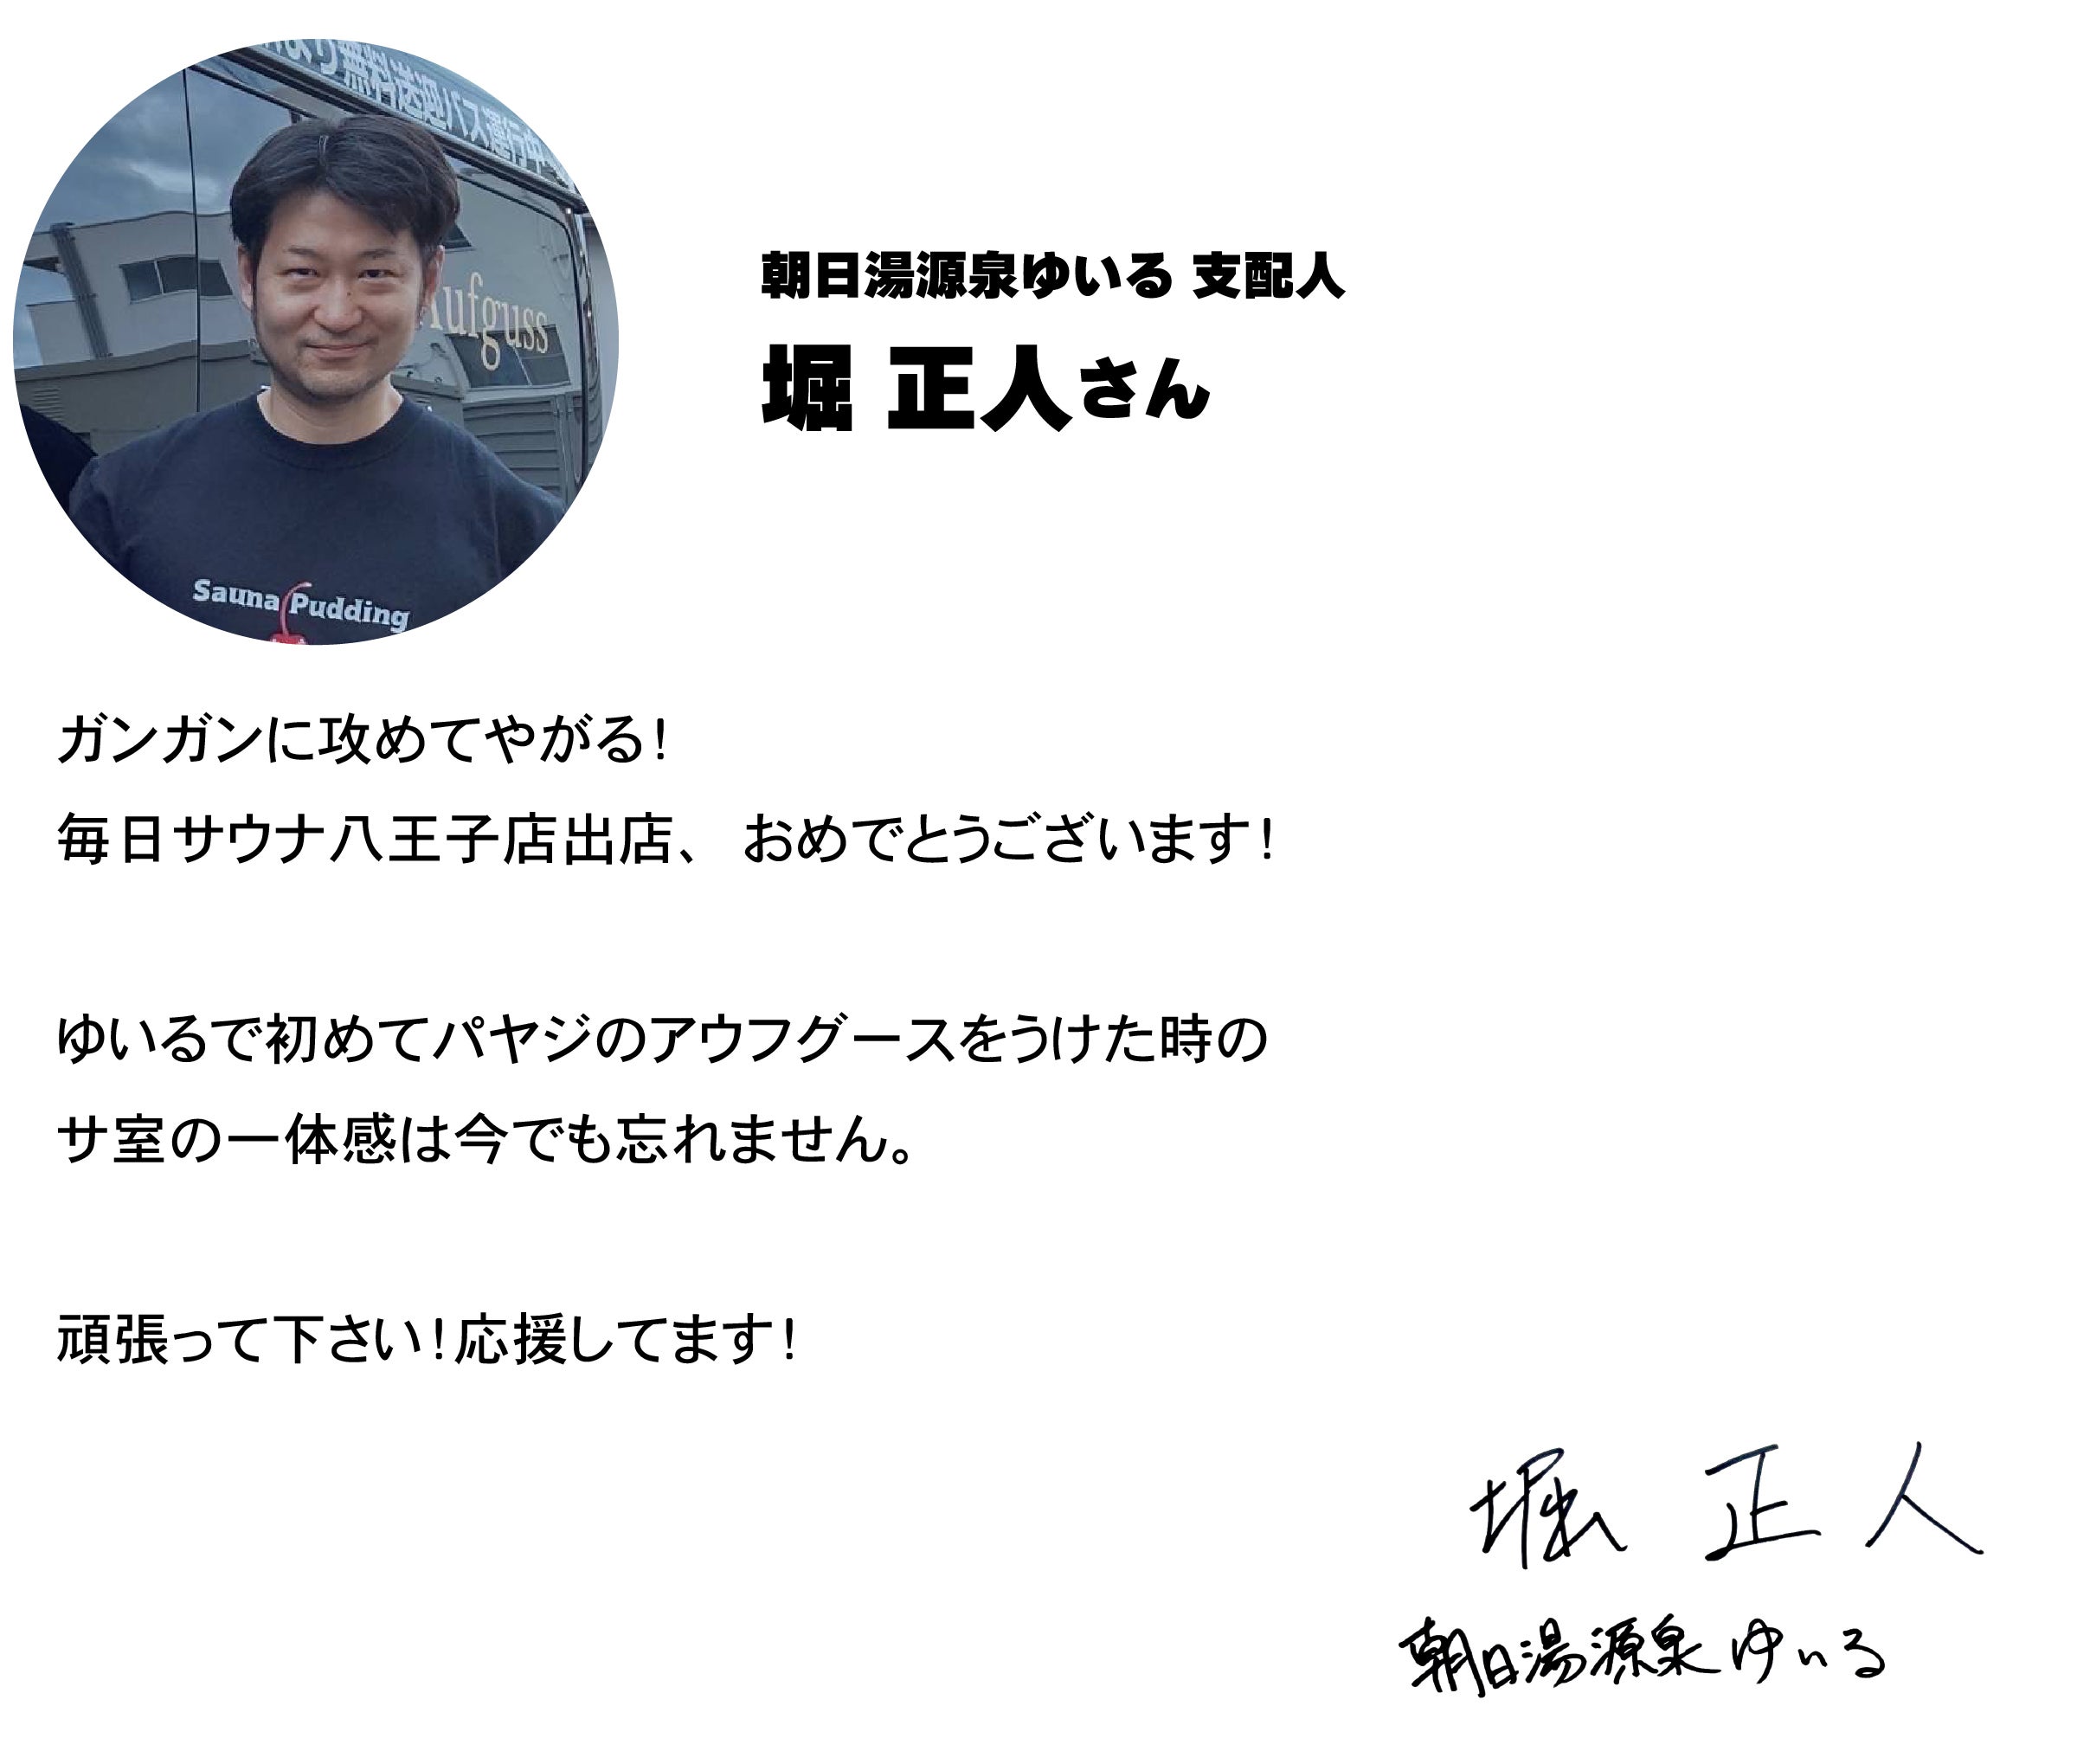 より無料送迎バス運行中
Aufguss
Sauna Pudding
朝日湯源泉ゆいる 支配人
堀 正人さん
ガンガンに攻めてやがる!
毎日サウナ八王子店出店、 おめでとうございます!
ゆいるで初めてパヤジのアウフグースをうけた時の
サ室の一体感は今でも忘れません。
頑張って下さい!応援してます!
堀 正人
朝日湯源泉ゆいる